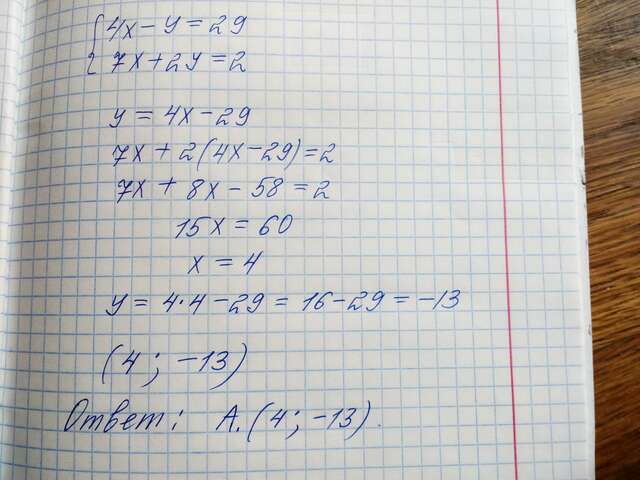 4x - y = 29
7x + 2y = 2
y = 4x - 29
7x + 2(4x - 29) = 2
7x + 8x - 58 = 2
15x = 60
x = 4
y = 4·4 - 29 = 16 - 29 = -13
(4; -13)
Ответ: А. (4; -13).